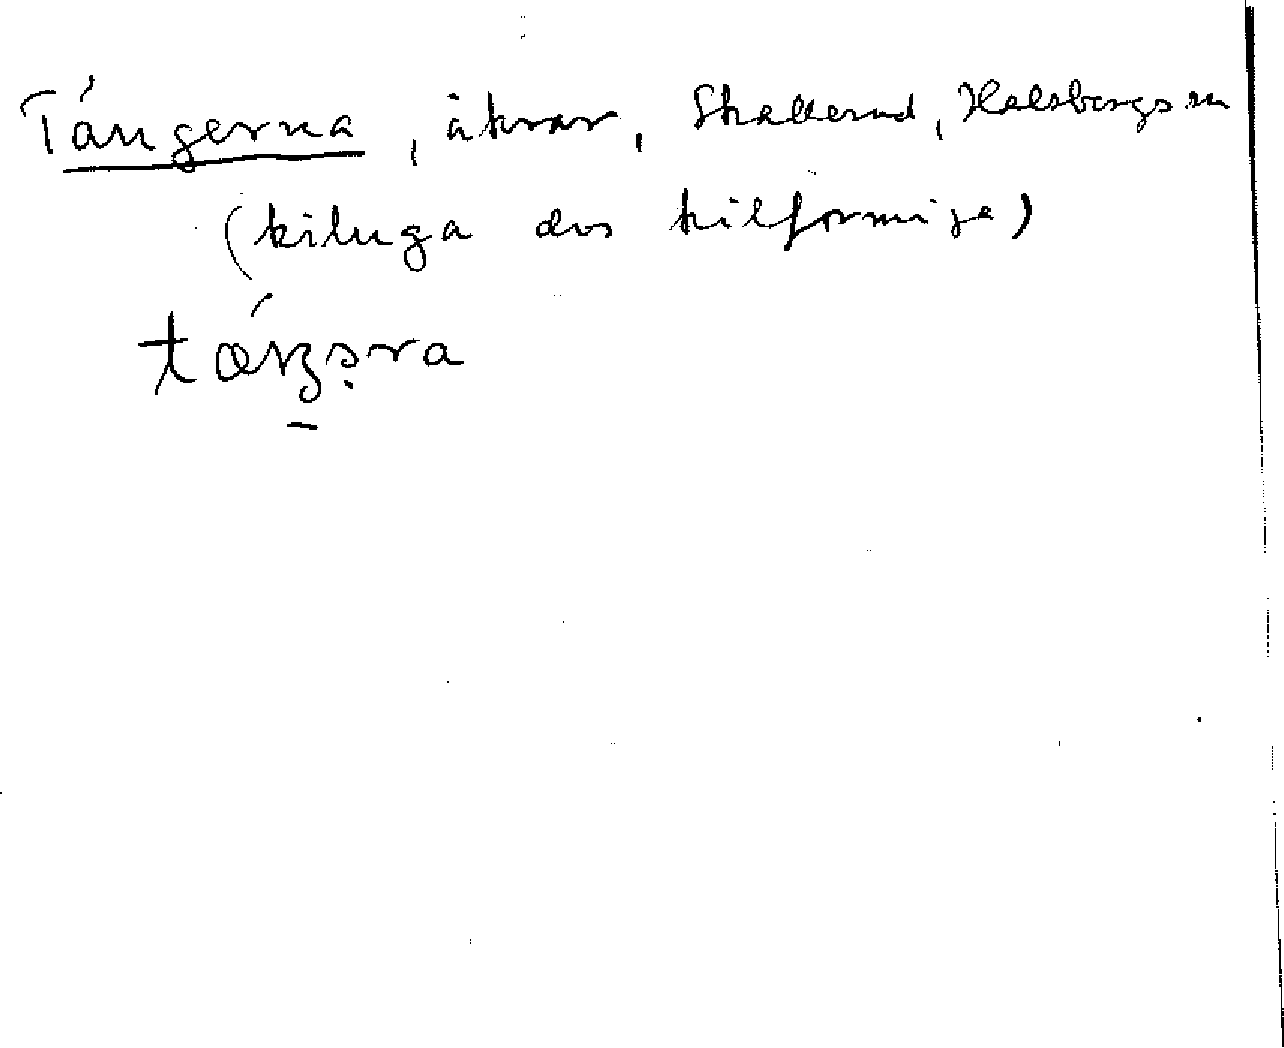 Tángerna, åkrar, Skallerud, Halsbergs sn
(kiluga dvs kilformiga)